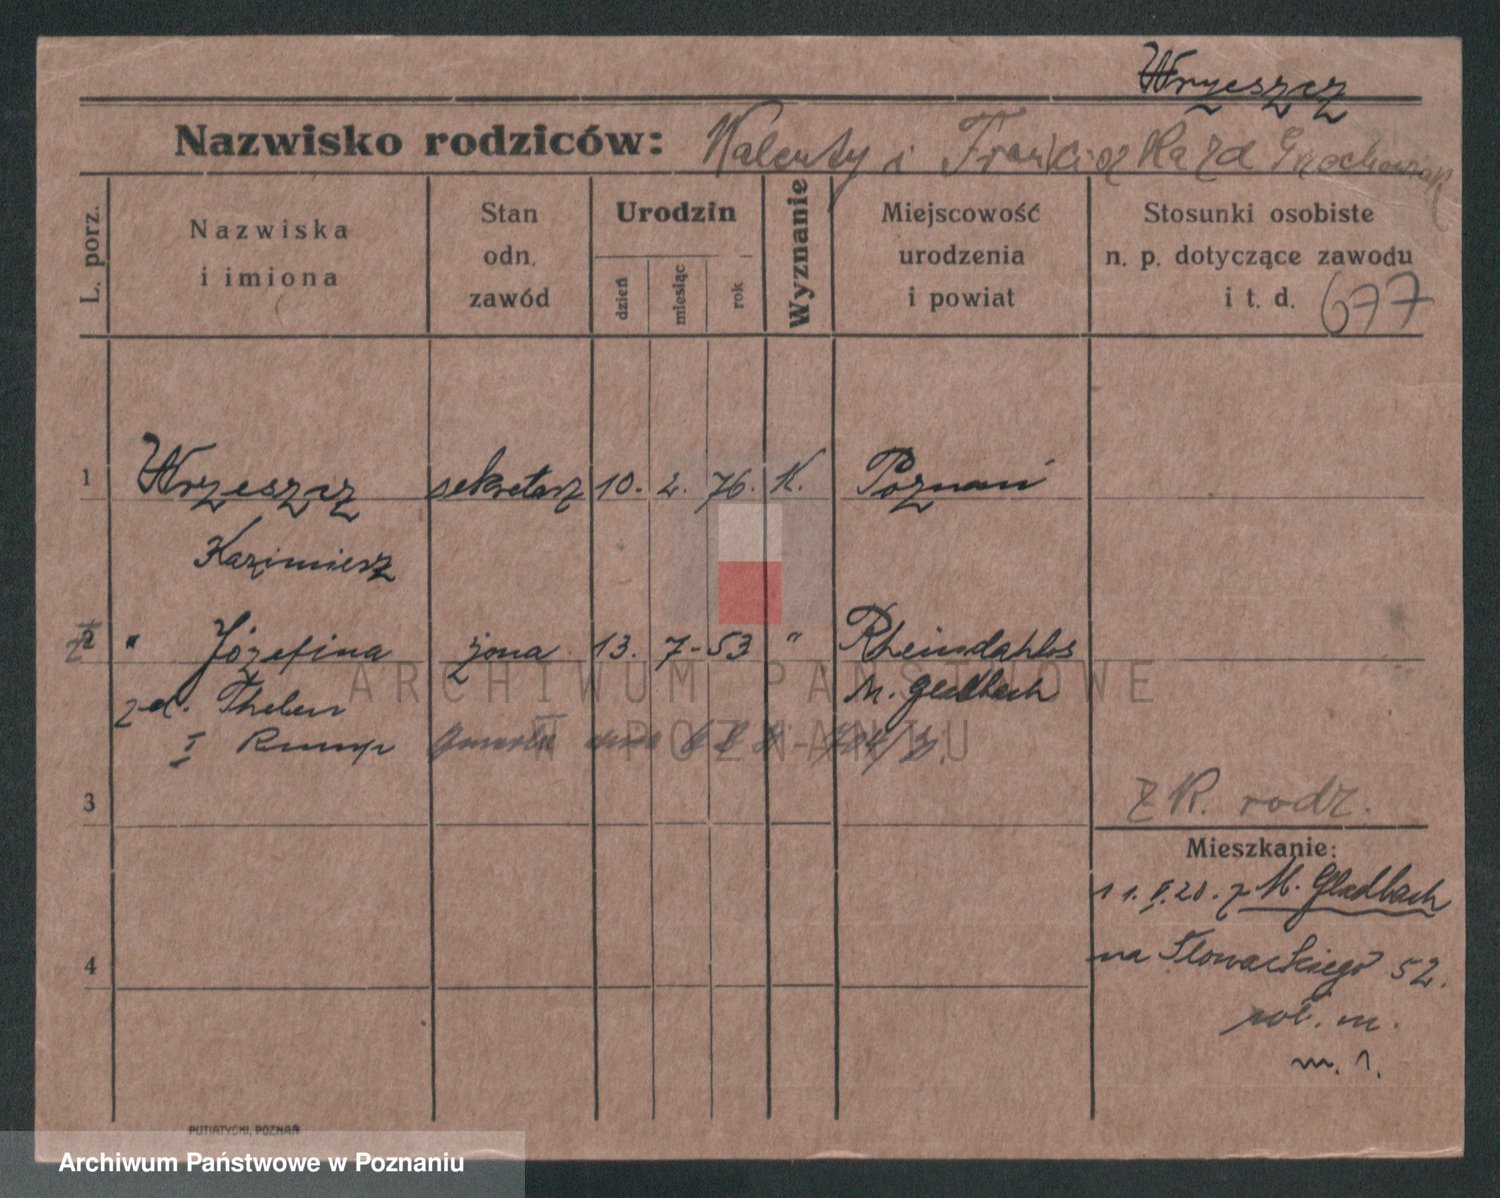 Wrzeszcz
Nazwisko rodziców: Walenty i Franciszka zd
L. porz.
Nazwiska
i imiona
Stan
odn.
zawód
Urodzin
dzień
miesiąc
rok
Wyznanie
Miejscowość
urodzenia
i powiat
Stosunki osobiste
n. p. dotyczące zawodu
i t. d. 677
1 Wrzeszcz sekretarz 10. 2. 76. K. Poznań
Kazimierz
2 " Józefina żona 13. 7. 53 "
M. Gladbach
zd. Thelen
I Rump
3
z K. rodz.
Mieszkanie:
11. V. 20. z M. Gladbach
na Słowackiego 52.
4
m. 1.
PUTIATYCKI, POZNAŃ
ARCHIWUM PAŃSTWOWE
W POZNANIU
Archiwum Państwowe w Poznaniu